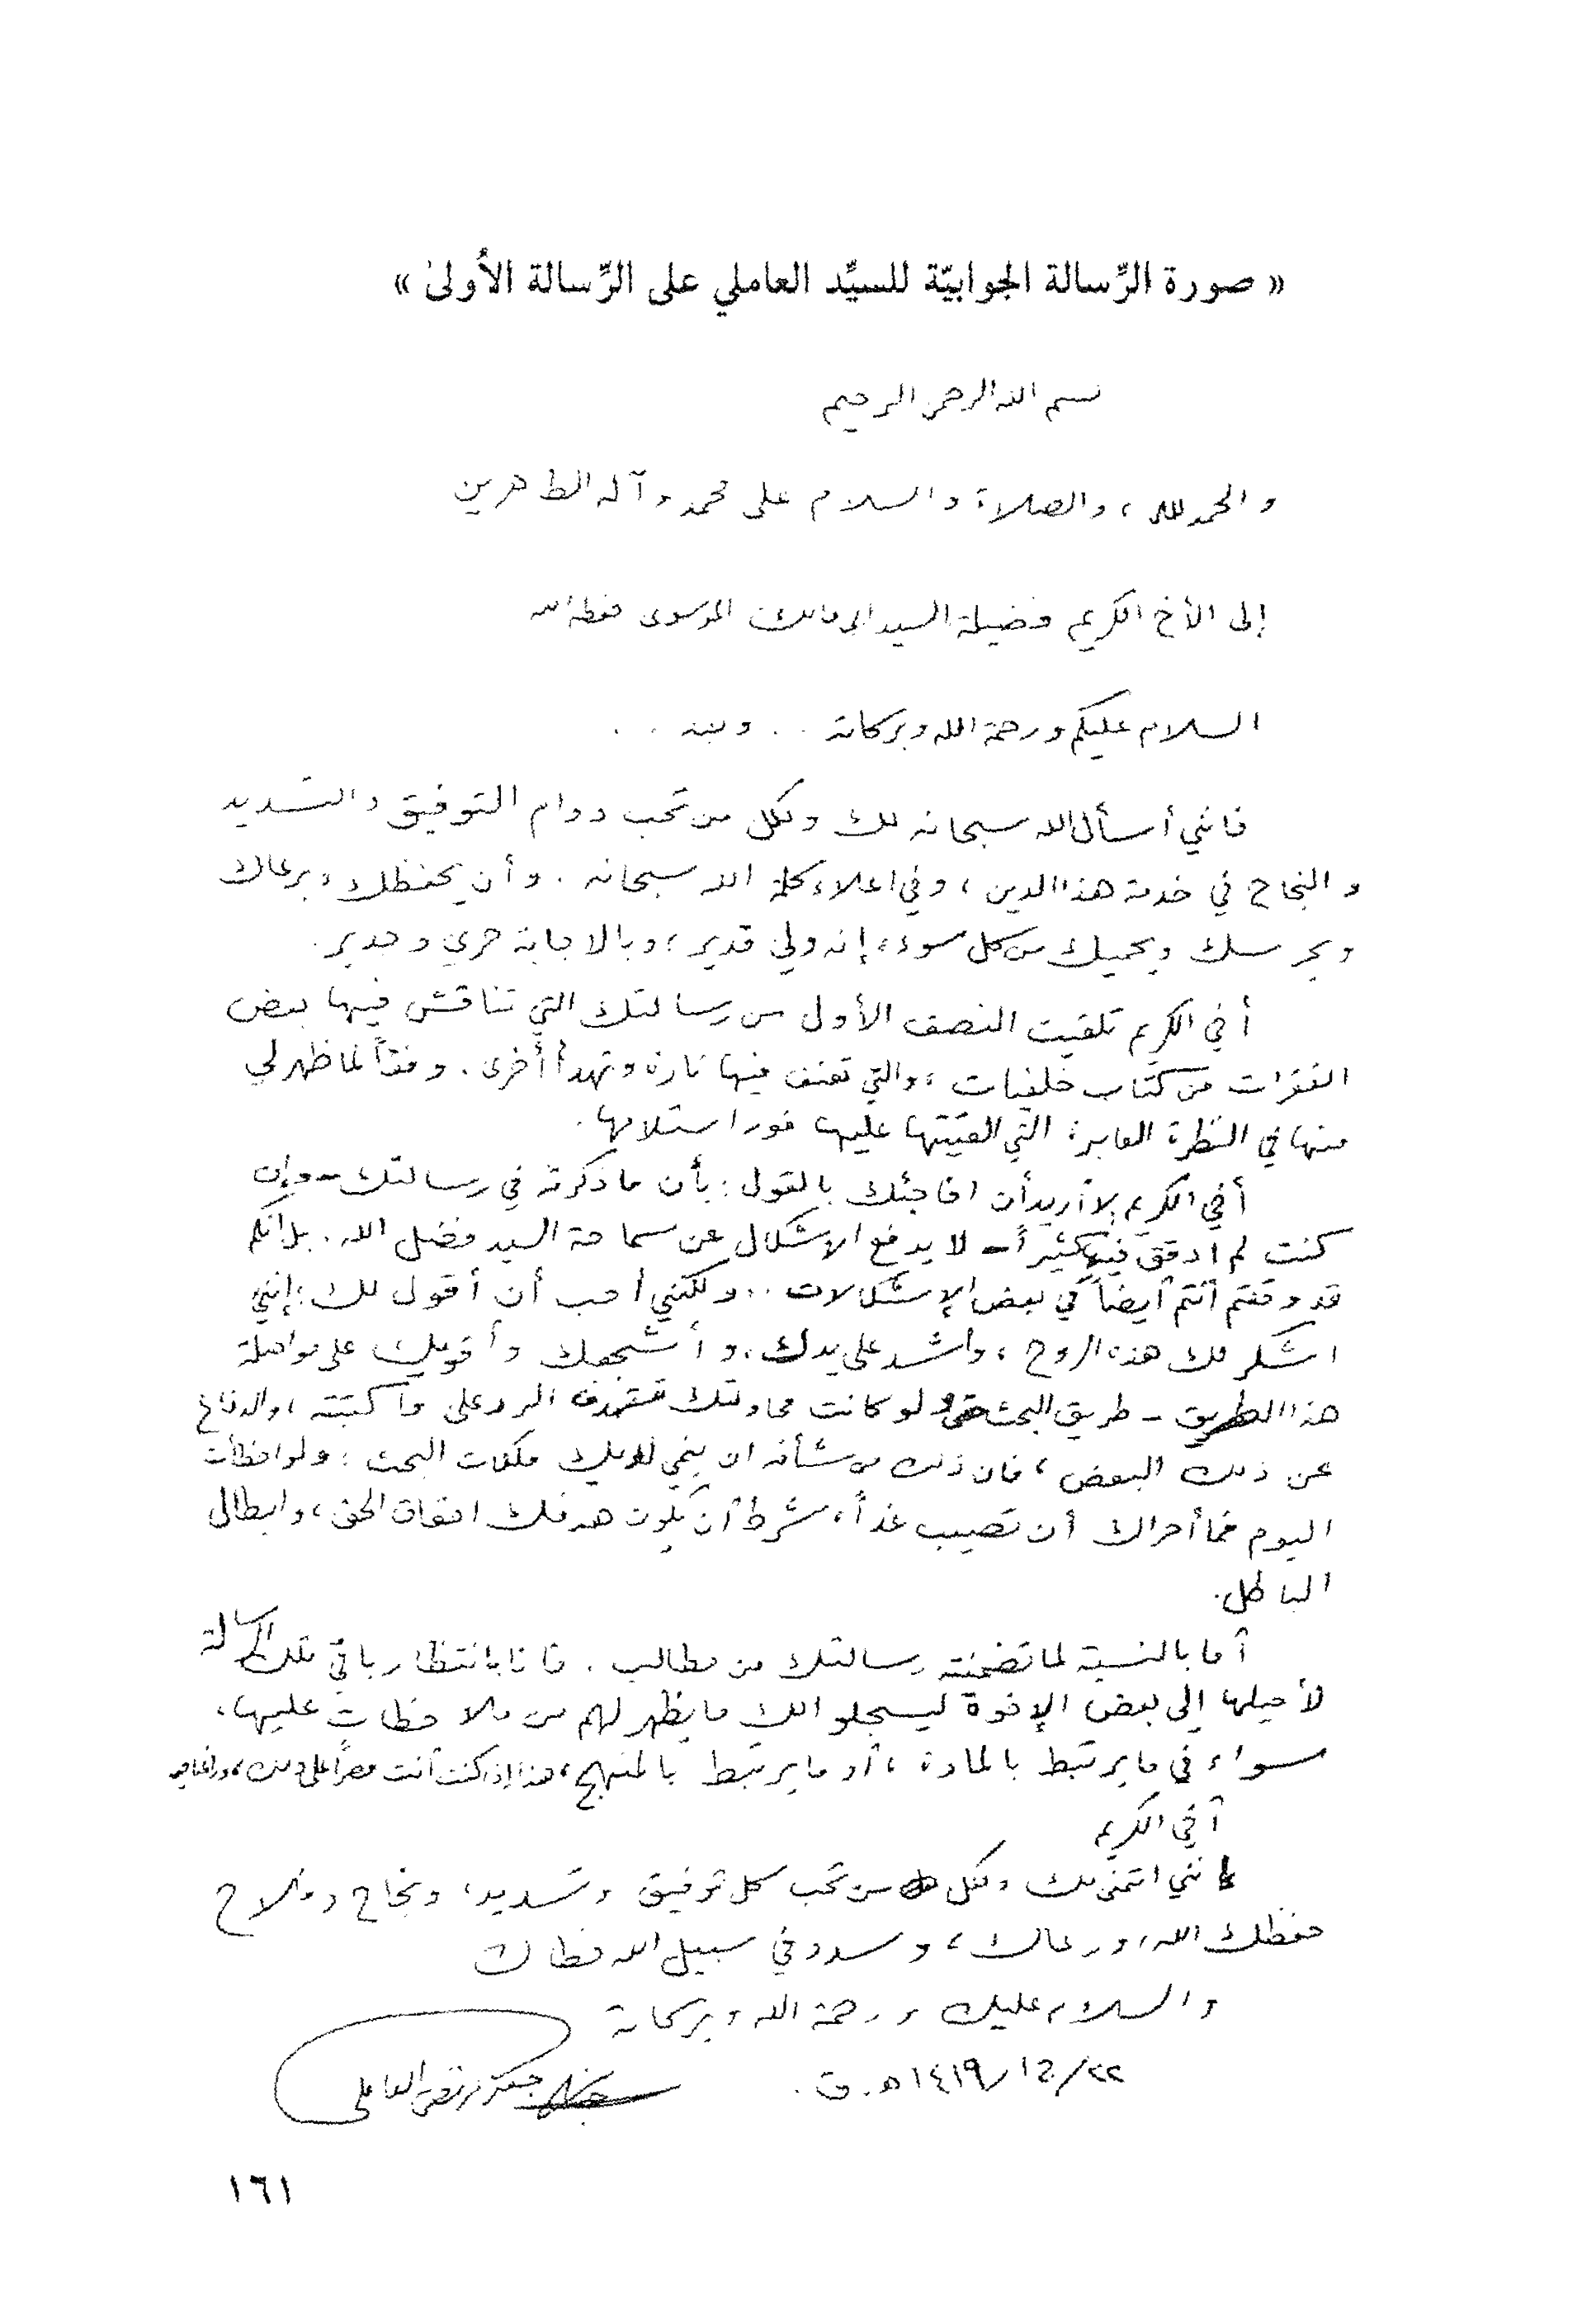 « صورة الرِّسالة الجوابيّة للسيِّد العاملي على الرِّسالة الأولىٰ »
بسم الله الرحمن الرحيم
والحمد لله ، والصلاة والسلام على محمد وآله الطاهرين
إلى الأخ الكريم فضيلة السيد ابو مالك الموسوي حفظه الله
السلام عليكم ورحمة الله وبركاته . . وبعد . .
فانني أسأل الله سبحانه لك ولكل من تحب دوام التوفيق والتسديد
والنجاح في خدمة هذا الدين ، وفي اعلاء كلمة الله سبحانه . وأن يحفظك ويرعاك
ويحرسك ويحميك من كل سوء ، إنه ولي قدير ، وبالاجابة حري وجدير .
أخي الكريم تلقيت النصف الأول من رسالتك التي تناقش فيها بعض
الفقرات من كتاب خلفيات ، والتي تعنف فيها تارة وتهدأ أخرى . وفقاً لما ظهر لي
منها في النظرة العابرة التي القيتها عليها فور استلامها .
أخي الكريم لا أريد أن افاجئك بالقول : بأن ما ذكرته في رسالتك - وإن
كنت لم ادقق فيه كثيراً - لا يدفع الاشكال عن سماحة السيد فضل الله . بل انكم
قد وقعتم أنتم أيضاً في بعض الإشكالات . . ولكنني أحب أن أقول لك : إنني
اشكر لك هذه الروح ، وأشد على يدك ، وأشجعك وأقويك على مواصلة
هذا الطريق - طريق البحث حتى ولو كانت محاولتك تستهدف الرد على ما كتبته ، والدفاع
عن ذلك البعض ، فان ذلك من شأنه ان ينمي لديك ملكات البحث ؛ ولو اخطأت
اليوم فما أحراك أن تصيب غداً ، شرط أن يكون هدفك احقاق الحق ، وابطال
الباطل .
أما بالنسبة لما تضمنته رسالتك من مطالب . فانا بانتظار باقي تلك الرسالة
لأحيلها إلى بعض الإخوة ليسجلوا لك ما يظهر لهم من ملاحظات عليها ،
سواء في ما يرتبط بالمادة ، أو ما يرتبط بالمنهج ، هذا إذا كنت أنت مصراً على ذلك ،
أخي الكريم
انني اتمنى لك ولكل من تحب كل توفيق وتسديد ، ونجاح وفلاح
حفظك الله ، ورعاك ، وسدد في سبيل الله خطاك
والسلام عليك ورحمة الله وبركاته
٢٢/١٢/١٤١٩ هـ . ق .
جعفر مرتضى العاملي
١٦١